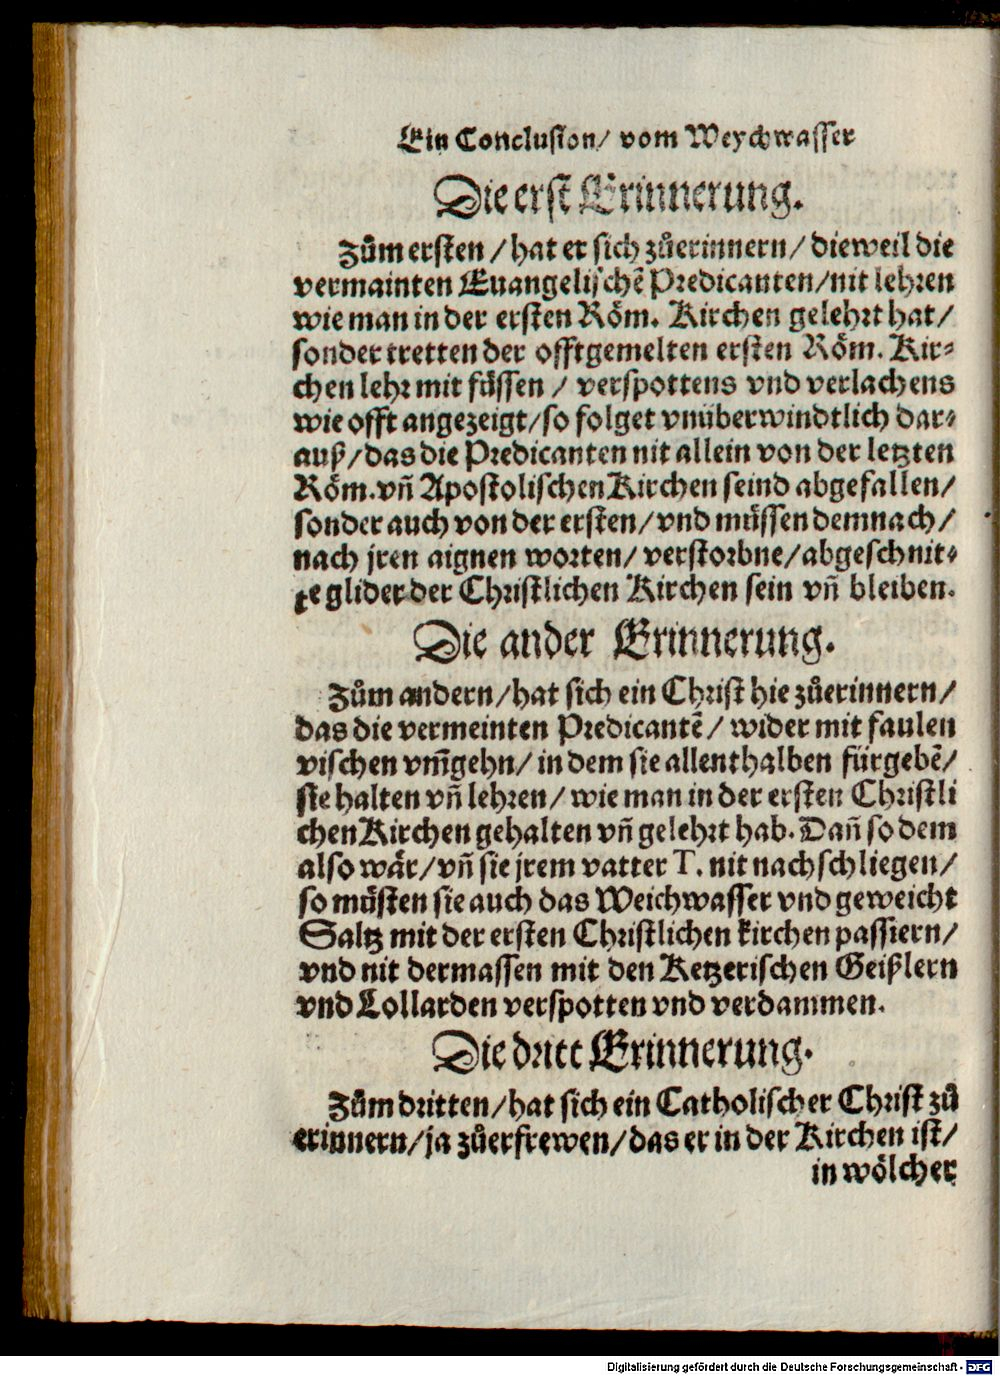 Ein Conclusion/ vom Weychwasser
Die erst Erinnerung.
Zům ersten /hat er sich zůerinnern/ dieweil die
vermainten Euangelischẽ Predicanten/nit lehren
wie man in der ersten Röm. Kirchen gelehrt hat/
sonder tretten der offtgemelten ersten Röm. Kir⸗
chen lehr mit füssen / verspottens vnd verlachens
wie offt angezeigt/so folget vnüberwindtlich dar⸗
auß/das die Predicanten nit allein von der letzten
Röm.vñ Apostolischen Kirchen seind abgefallen/
sonder auch von der ersten/vnd müssen demnach/
nach jren aignen worten/ verstorbne/abgeschnit⸗
te glider der Christlichen Kirchen sein vñ bleiben.
Die ander Erinnerung.
Zům andern/hat sich ein Christ hie zůerinnern/
das die vermeinten Predicantẽ/ wider mit faulen
vischen vm̃gehn/in dem sie allenthalben fürgebẽ/
sie halten vñ lehren/wie man in der ersten Christli
chen Kirchen gehalten vñ gelehrt hab. Dañ so dem
also wär/vñ sie jrem vatter T. nit nachschliegen/
so müsten sie auch das Weichwasser vnd geweicht
Saltz mit der ersten Christlichen kirchen passiern/
vnd nit dermassen mit den Ketzerischen Geißlern
vnd Lollarden verspotten vnd verdammen.
Die dritt Erinnerung.
Zům dritten/hat sich ein Catholischer Christ zů
erinnern/ja zůerfrewen/das er in der Kirchen ist/
in wölcher
Digitalisierung gefördert durch die Deutsche Forschungsgemeinschaft - DFG